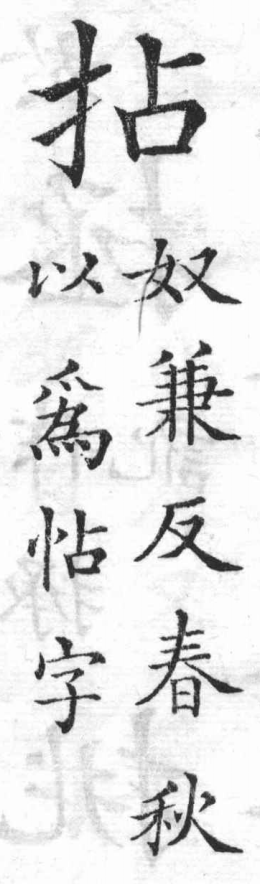 拈
奴兼反春秋
以為帖字